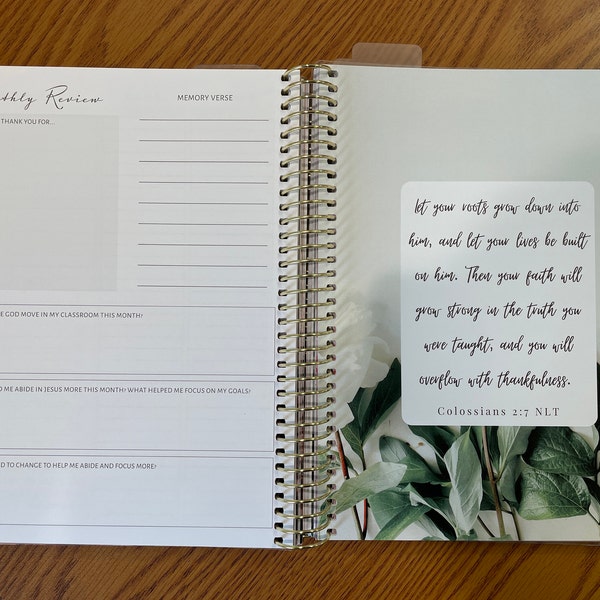 thly Review
MEMORY VERSE
THANK YOU FOR...
E GOD MOVE IN MY CLASSROOM THIS MONTH?
D ME ABIDE IN JESUS MORE THIS MONTH? WHAT HELPED ME FOCUS ON MY GOALS?
D TO CHANGE TO HELP ME ABIDE AND FOCUS MORE?
let your roots grow down into
him, and let your lives be built
on him. Then your faith will
grow strong in the truth you
were taught, and you will
overflow with thankfulness.
Colossians 2:7 NLT